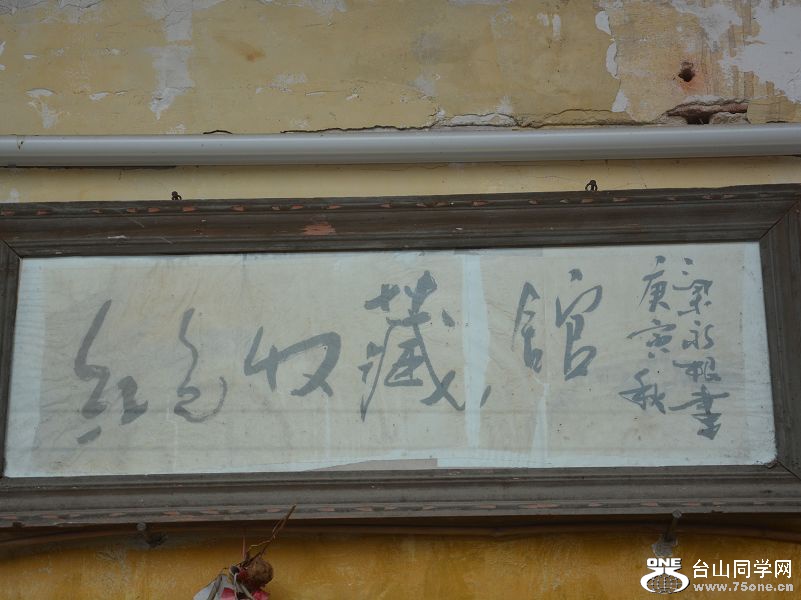 红色收藏馆
庚寅秋
梁永根书
ONE 台山同学网
www.75one.cn